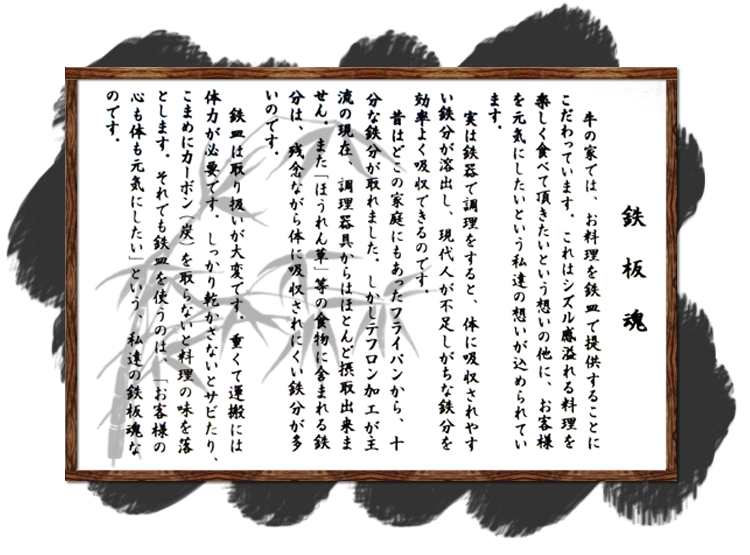 鉄板魂
牛の家では、お料理を鉄皿で提供することに
こだわっています。これはシズル感溢れる料理を
楽しく食べて頂きたいという想いの他に、お客様
を元気にしたいという私達の想いが込められてい
ます。
実は鉄器で調理をすると、体に吸収されやす
い鉄分が溶出し、現代人が不足しがちな鉄分を
効率よく吸収できるのです。
昔はどこの家庭にもあったフライパンから、十
分な鉄分が取れました。しかしテフロン加工が主
流の現在、調理器具からはほとんど摂取出来ま
せん。また「ほうれん草」等の食物に含まれる鉄
分は、残念ながら体に吸収されにくい鉄分が多
いのです。
鉄皿は取り扱いが大変です。重くて運搬には
体力が必要です。しっかり乾かさないとサビたり、
こまめにカーボン(炭)を取らないと料理の味を落
とします。それでも鉄皿を使うのは、「お客様の
心も体も元気にしたい」という、私達の鉄板魂な
のです。